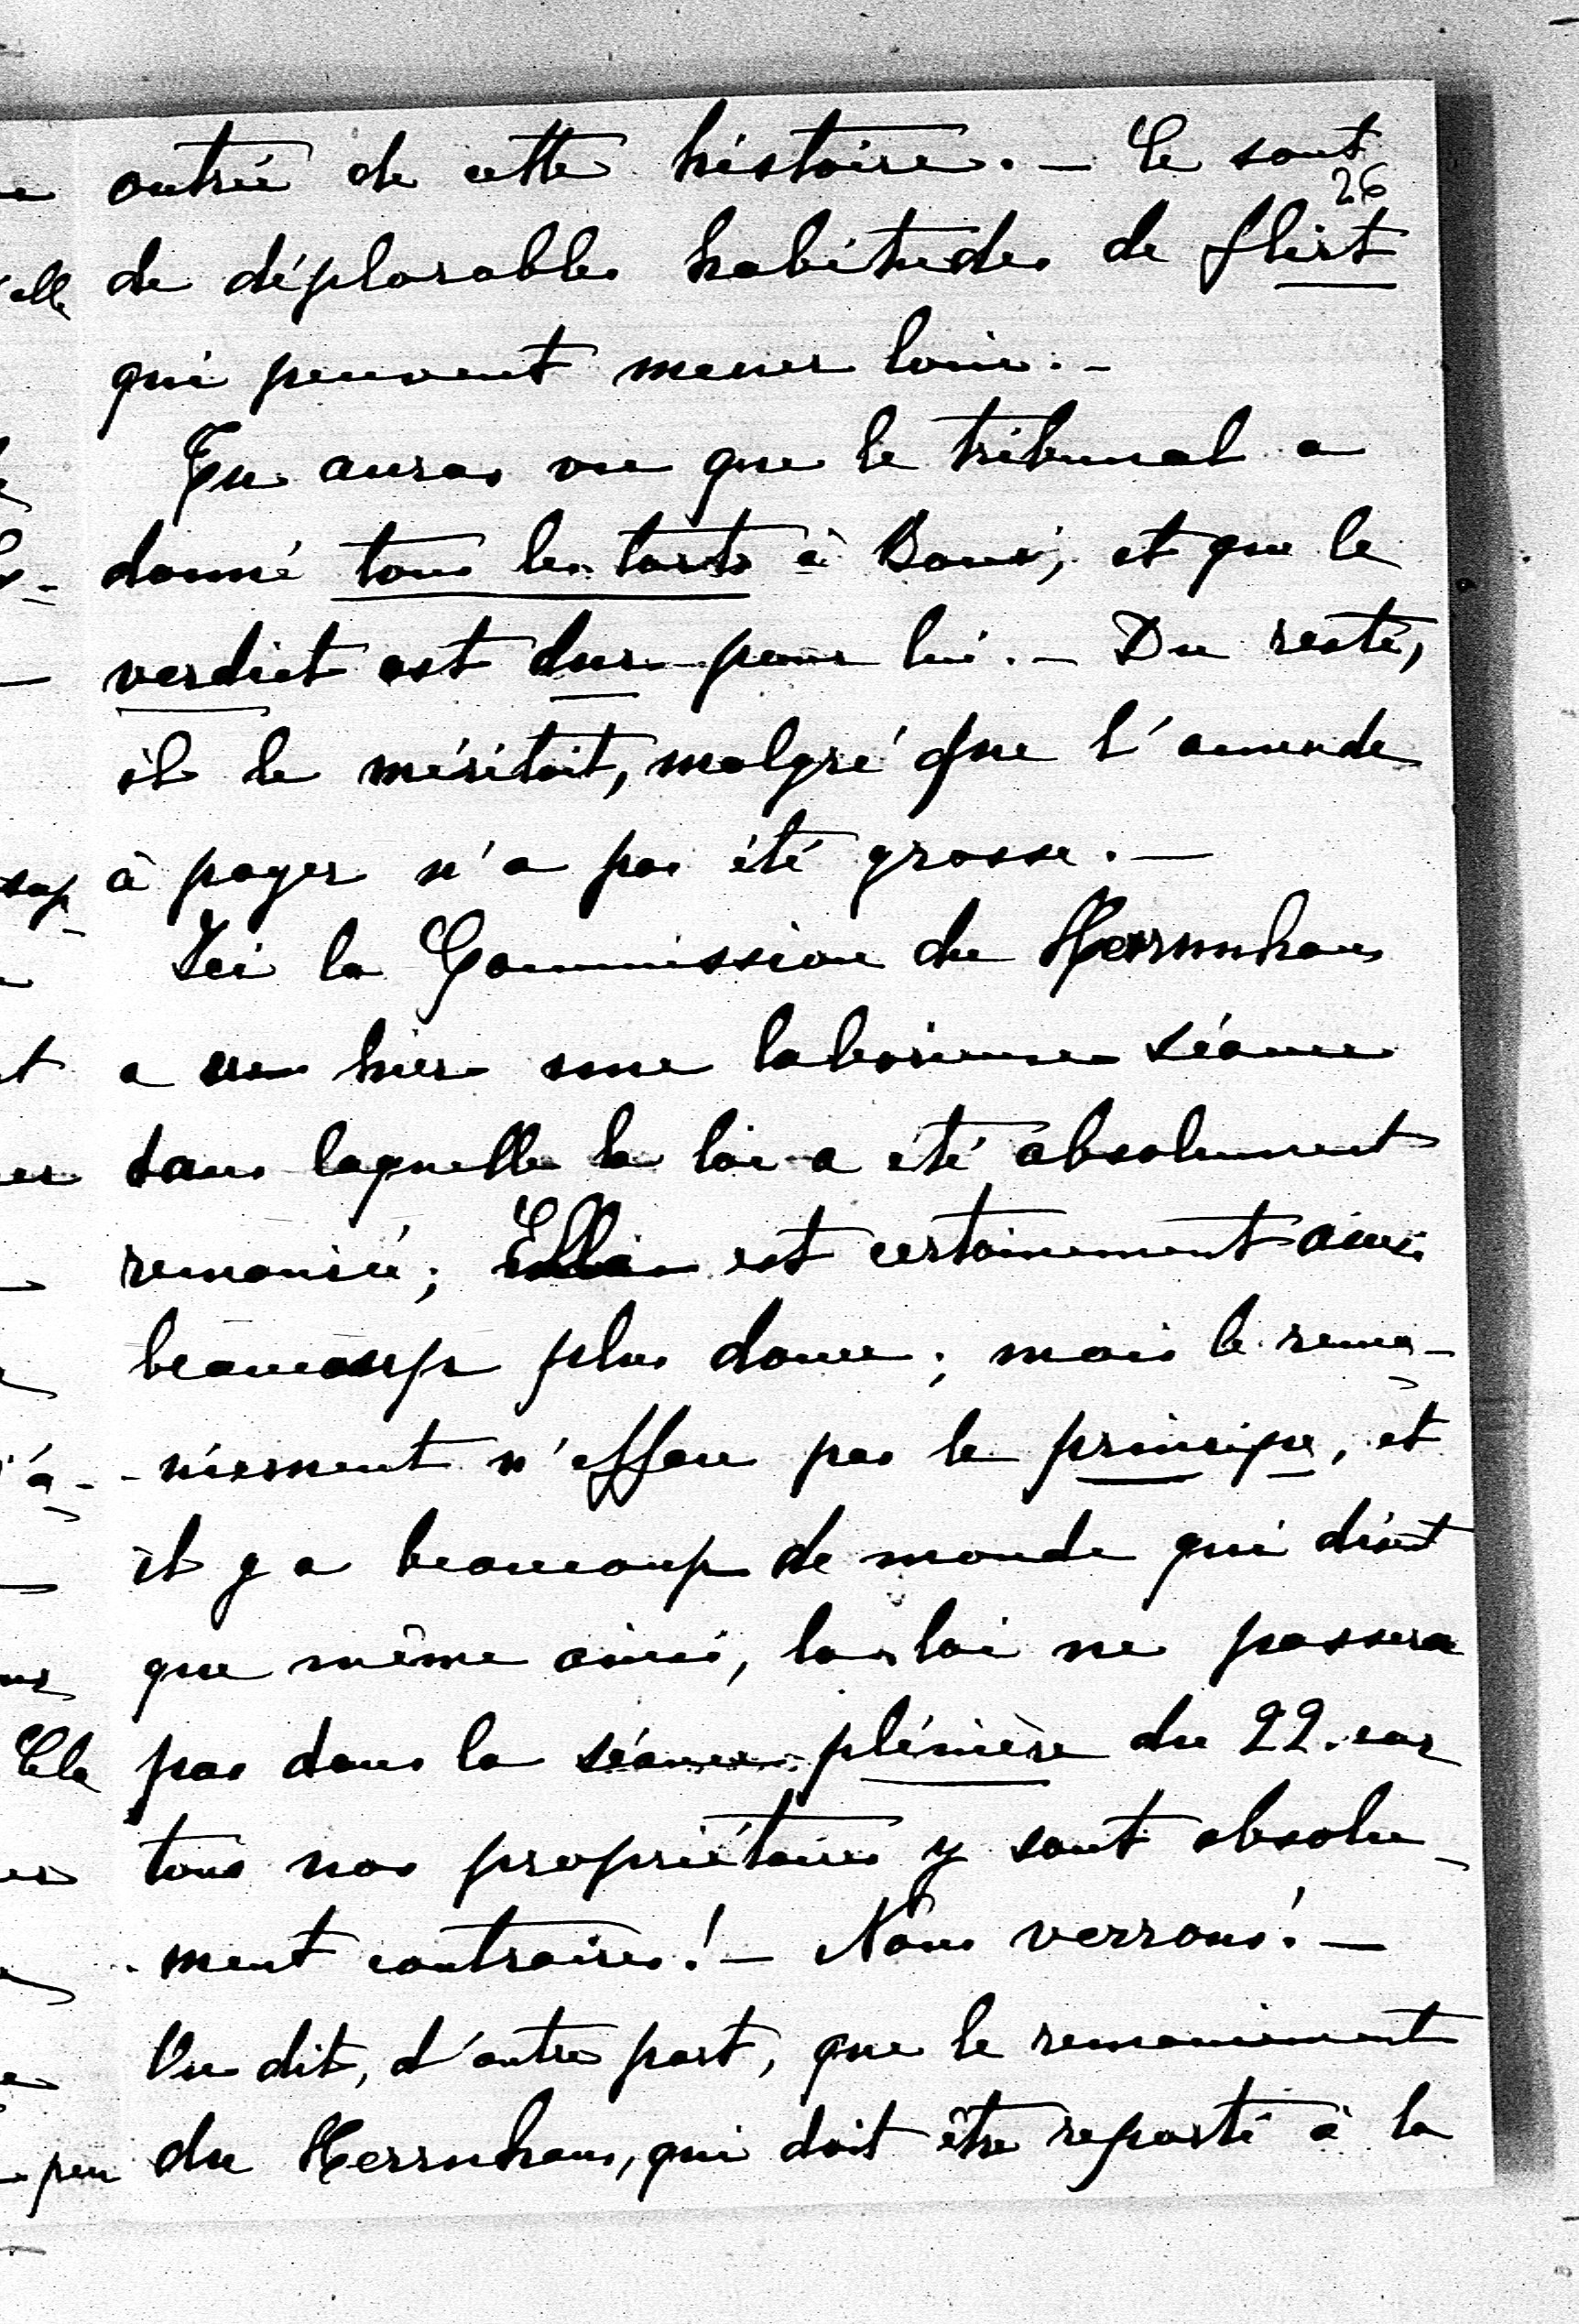 outrée de cette histoire. — Ce sont
26
de déplorables habitudes de flirt
qui peuvent mener loin. -
Tu auras vu que le tribunal a
donné tous les torts à et que le
verdict est dur pour lui. — Du reste,
il le méritait, malgré que l'amende
à payer n'a pas été grosse. —
Ici la Commission du Herrnhaus
a eu hier une laborieuse séance
dans laquelle la loi a été absolument
remaniée; Elle est certainement ainsi
beaucoup plus douce; mais le rema-
-niement n'efface pas le principe, et
il y a beaucoup de monde qui disent
que même ainsi, la loi ne passera
pas dans la séance plénière du 22. car
tous nos propriétaires y sont absolu-
-ment contraires! — Nous verrons! —
On dit, d'autre part, que le remaniement
du Herrnhaus, qui doit être reporté à la